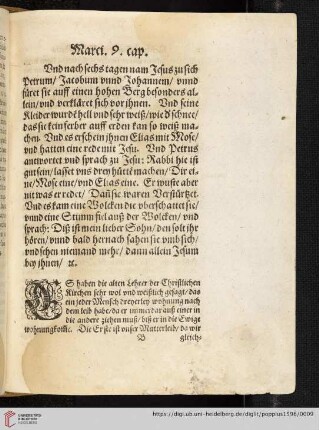 Marci. 9. cap.
Vnd nach sechs tagen nam Jesus zu sich
Petrum/ Jacobum vnnd Johannem/ vnnd
füret sie auff einen hohen Berg besonders al-
lein/ vnd verkläret sich vor ihnen. Vnd seine
Kleider wurdē hell vnd sehr weiß/ wie d' schnee/
das sie kein ferber auff erden kan so weiß ma-
chen. Vnd es erschein jhnen Elias mit Mose/
vnd hatten eine rede mit Jesu. Vnd Petrus
antwortet vnd sprach zu Jesu: Rabbi hie ist
gut sein/ lasset vns drey hütten machen/ Dir ei-
ne/ Mose eine/ vnd Elias eine. Er wuste aber
nit was er redet/ Dañ sie waren Verstürtzt.
Vnd es kam eine Wolcken die vberschattet sie/
vnnd eine Stimm fiel auß der Wolcken/ vnd
sprach: Diß ist mein lieber Sohn/ den solt jhr
hören/ vnnd bald hernach sahen sie vmb sich/
vnd sehen niemand mehr/ dann allein Jesum
bey jhnen/ ꝛc.
ES haben die alten Lehrer der Christlichen
Kirchen sehr wol vnd weißlich gesagt/ das
ein jeder Mensch dreyerley wohnung nach
dem leib habe/ da er immerdar auß einer in
die andere ziehen muß/ biß er in die Ewige
wohnung kom̃e. Die Erste ist vnser Mutterleib/ da wir
B
gleich=
UNIVERSITÄTS-
BIBLIOTHEK
HEIDELBERG
https://digi.ub.uni-heidelberg.de/diglit/poppius1596/0009